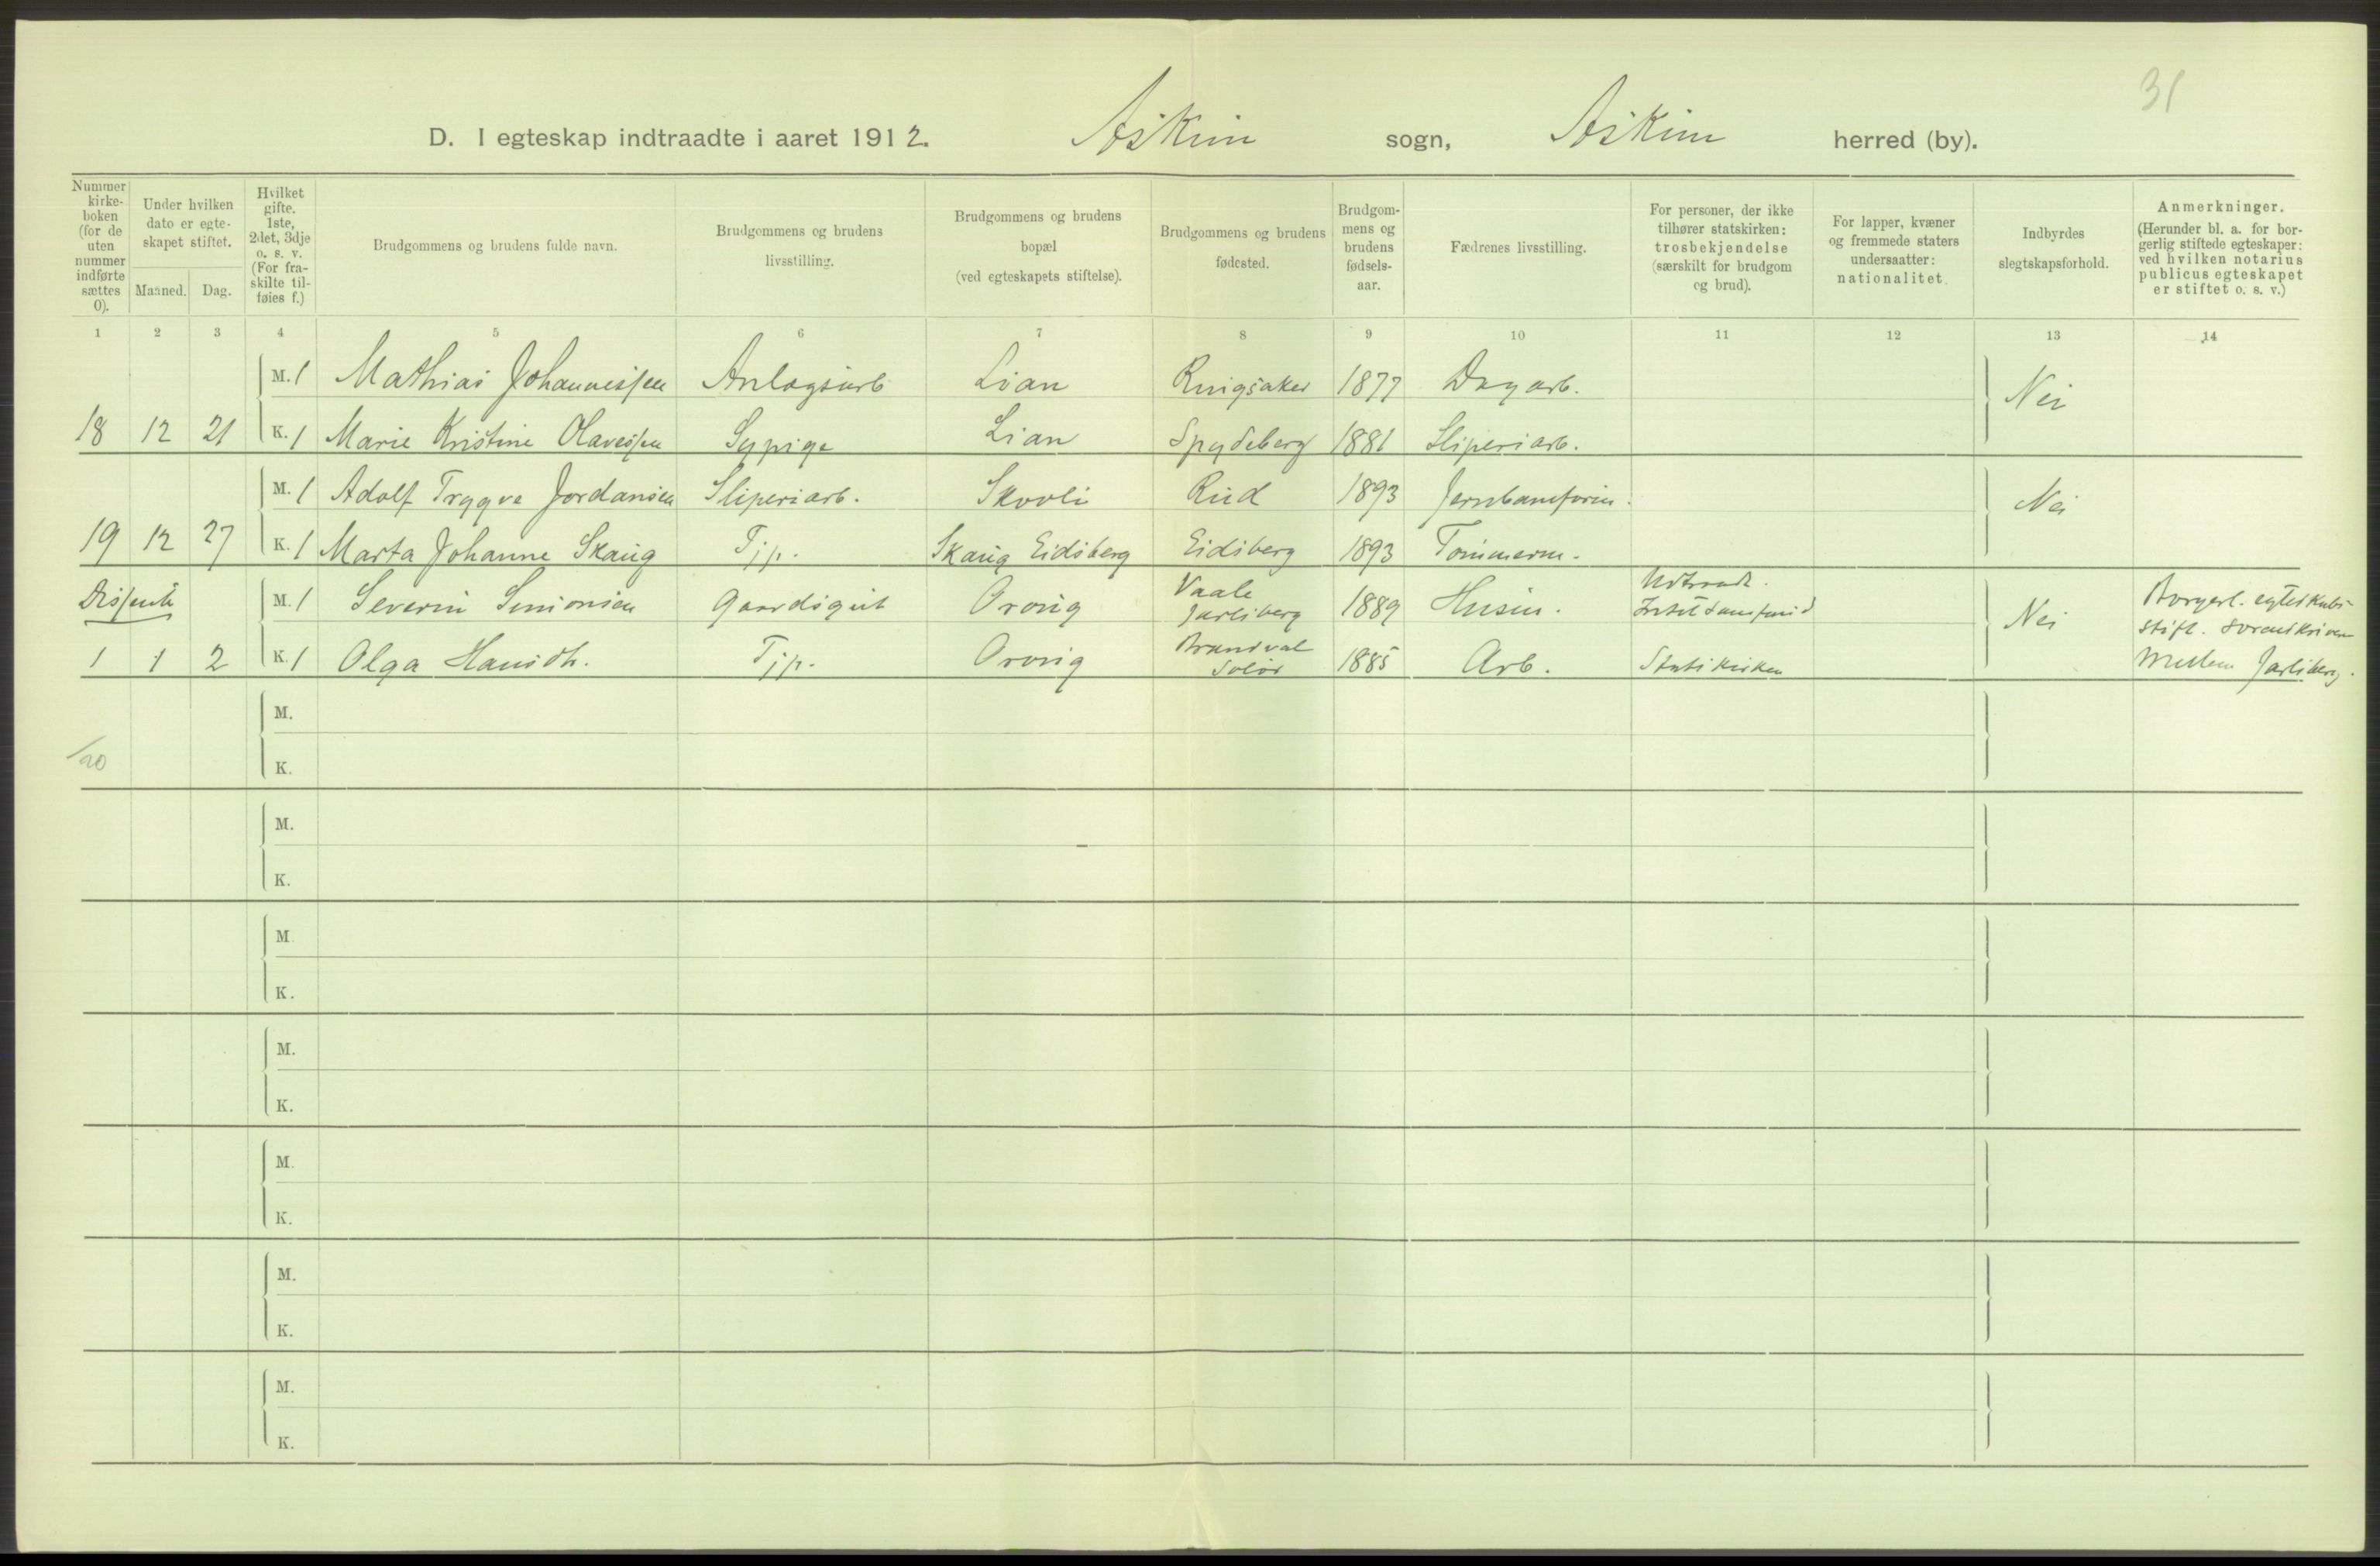 31
D. I egteskap indtraadte i aaret 1912. Askim sogn, Askim herred (by).
Nummer kirke-boken (for de uten nummer indførte sættes 0).
Under hvilken dato er egte-skapet stiftet.
Maaned. Dag.
Hvilket gifte. 1ste, 2det, 3dje o. s. v. (For fra-skilte til-føies f.)
Brudgommens og brudens fulde navn.
Brudgommens og brudens livsstilling.
Brudgommens og brudens bopæl (ved egteskapets stiftelse).
Brudgommens og brudens fødested.
Brudgom-mens og brudens fødsels-aar.
Fædrenes livsstilling.
For personer, der ikke tilhører statskirken: trosbekjendelse (særskilt for brudgom og brud).
For lapper, kvæner og fremmede staters undersaatter: nationalitet.
Indbyrdes slegtskapsforhold.
Anmerkninger. (Herunder bl. a. for bor-gerlig stiftede egteskaper: ved hvilken notarius publicus egteskapet er stiftet o. s. v.)
1 2 3 4 5 6 7 8 9 10 11 12 13 14
M. 1 Mathias Johannessen Anlægsarb Lian Ringsaker 1877 Dagarb. Nei
18 12 21 K. 1 Marie Kristine Olavessen Sypige Lian Spydeberg 1881 Sliperiarb.
M. 1 Adolf Trygve Jordansen Sliperiarb. Skovli Rud 1893 Jernbaneform. Nei
19 12 27 K. 1 Marta Johanne Skaug Tjp. Skaug Eidsberg Eidsberg 1893 Tømmerm.
Dissente M. 1 Severin Simonsen Gaardsgut Vaale Jarlsberg 1889 Husm. Udtraadt. Nei Borgerl. egteskabs-stift. sorenskriver
1 1 2 K. 1 Olga Hansdh. Tjp. Brandval Solør 1885 Arb. Statskirken Mellem Jarlsberg.
M.
/20 K.
M.
K.
M
K.
M.
K.
M.
K.
M.
K.
M.
K.